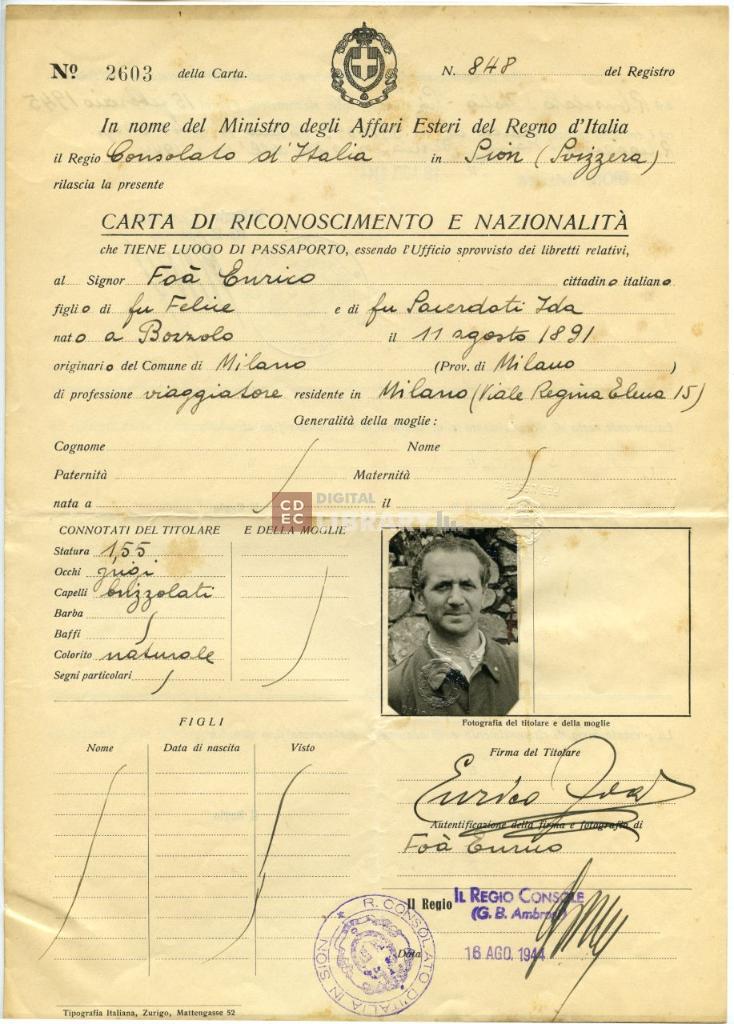 Nº 2603 della Carta. N. 848 del Registro
In nome del Ministro degli Affari Esteri del Regno d'Italia
il Regio Consolato d'Italia in Sion (Svizzera)
rilascia la presente
CARTA DI RICONOSCIMENTO E NAZIONALITÀ
che TIENE LUOGO DI PASSAPORTO, essendo l'Ufficio sprovvisto dei libretti relativi,
al Signor Foà Enrico cittadino italiano
figlio di fu Felice e di fu Sacerdoti Ida
nato a Bozzolo il 11 agosto 1891
originario del Comune di Milano (Prov. di Milano )
di professione viaggiatore residente in Milano (Viale Regina Elena 15)
Generalità della moglie:
Cognome Nome
Paternità Maternità
nata a il
CDEC DIGITAL LIBRARY
CONNOTATI DEL TITOLARE E DELLA MOGLIE
Statura 1,55
Occhi grigi
Capelli brizzolati
Barba
Baffi
Colorito naturale
Segni particolari
Fotografia del titolare e della moglie
FIGLI
Nome Data di nascita Visto
Firma del Titolare
Enrico Foà
Autentificazione della firma e fotografia di
Foà Enrico
Il Regio IL REGIO CONSOLE
(G. B. Ambrosi)
Data 16 AGO. 1944
R. CONSOLATO D'ITALIA IN SION
Tipografia Italiana, Zurigo, Mattengasse 52